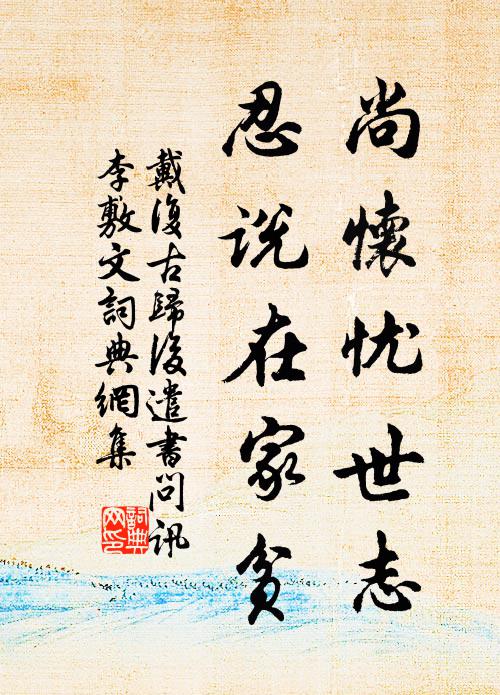 尚懷忧世志
忍说在家貧
戴復古歸後遣書問訊
李敷文詞典網集
詞典
网印